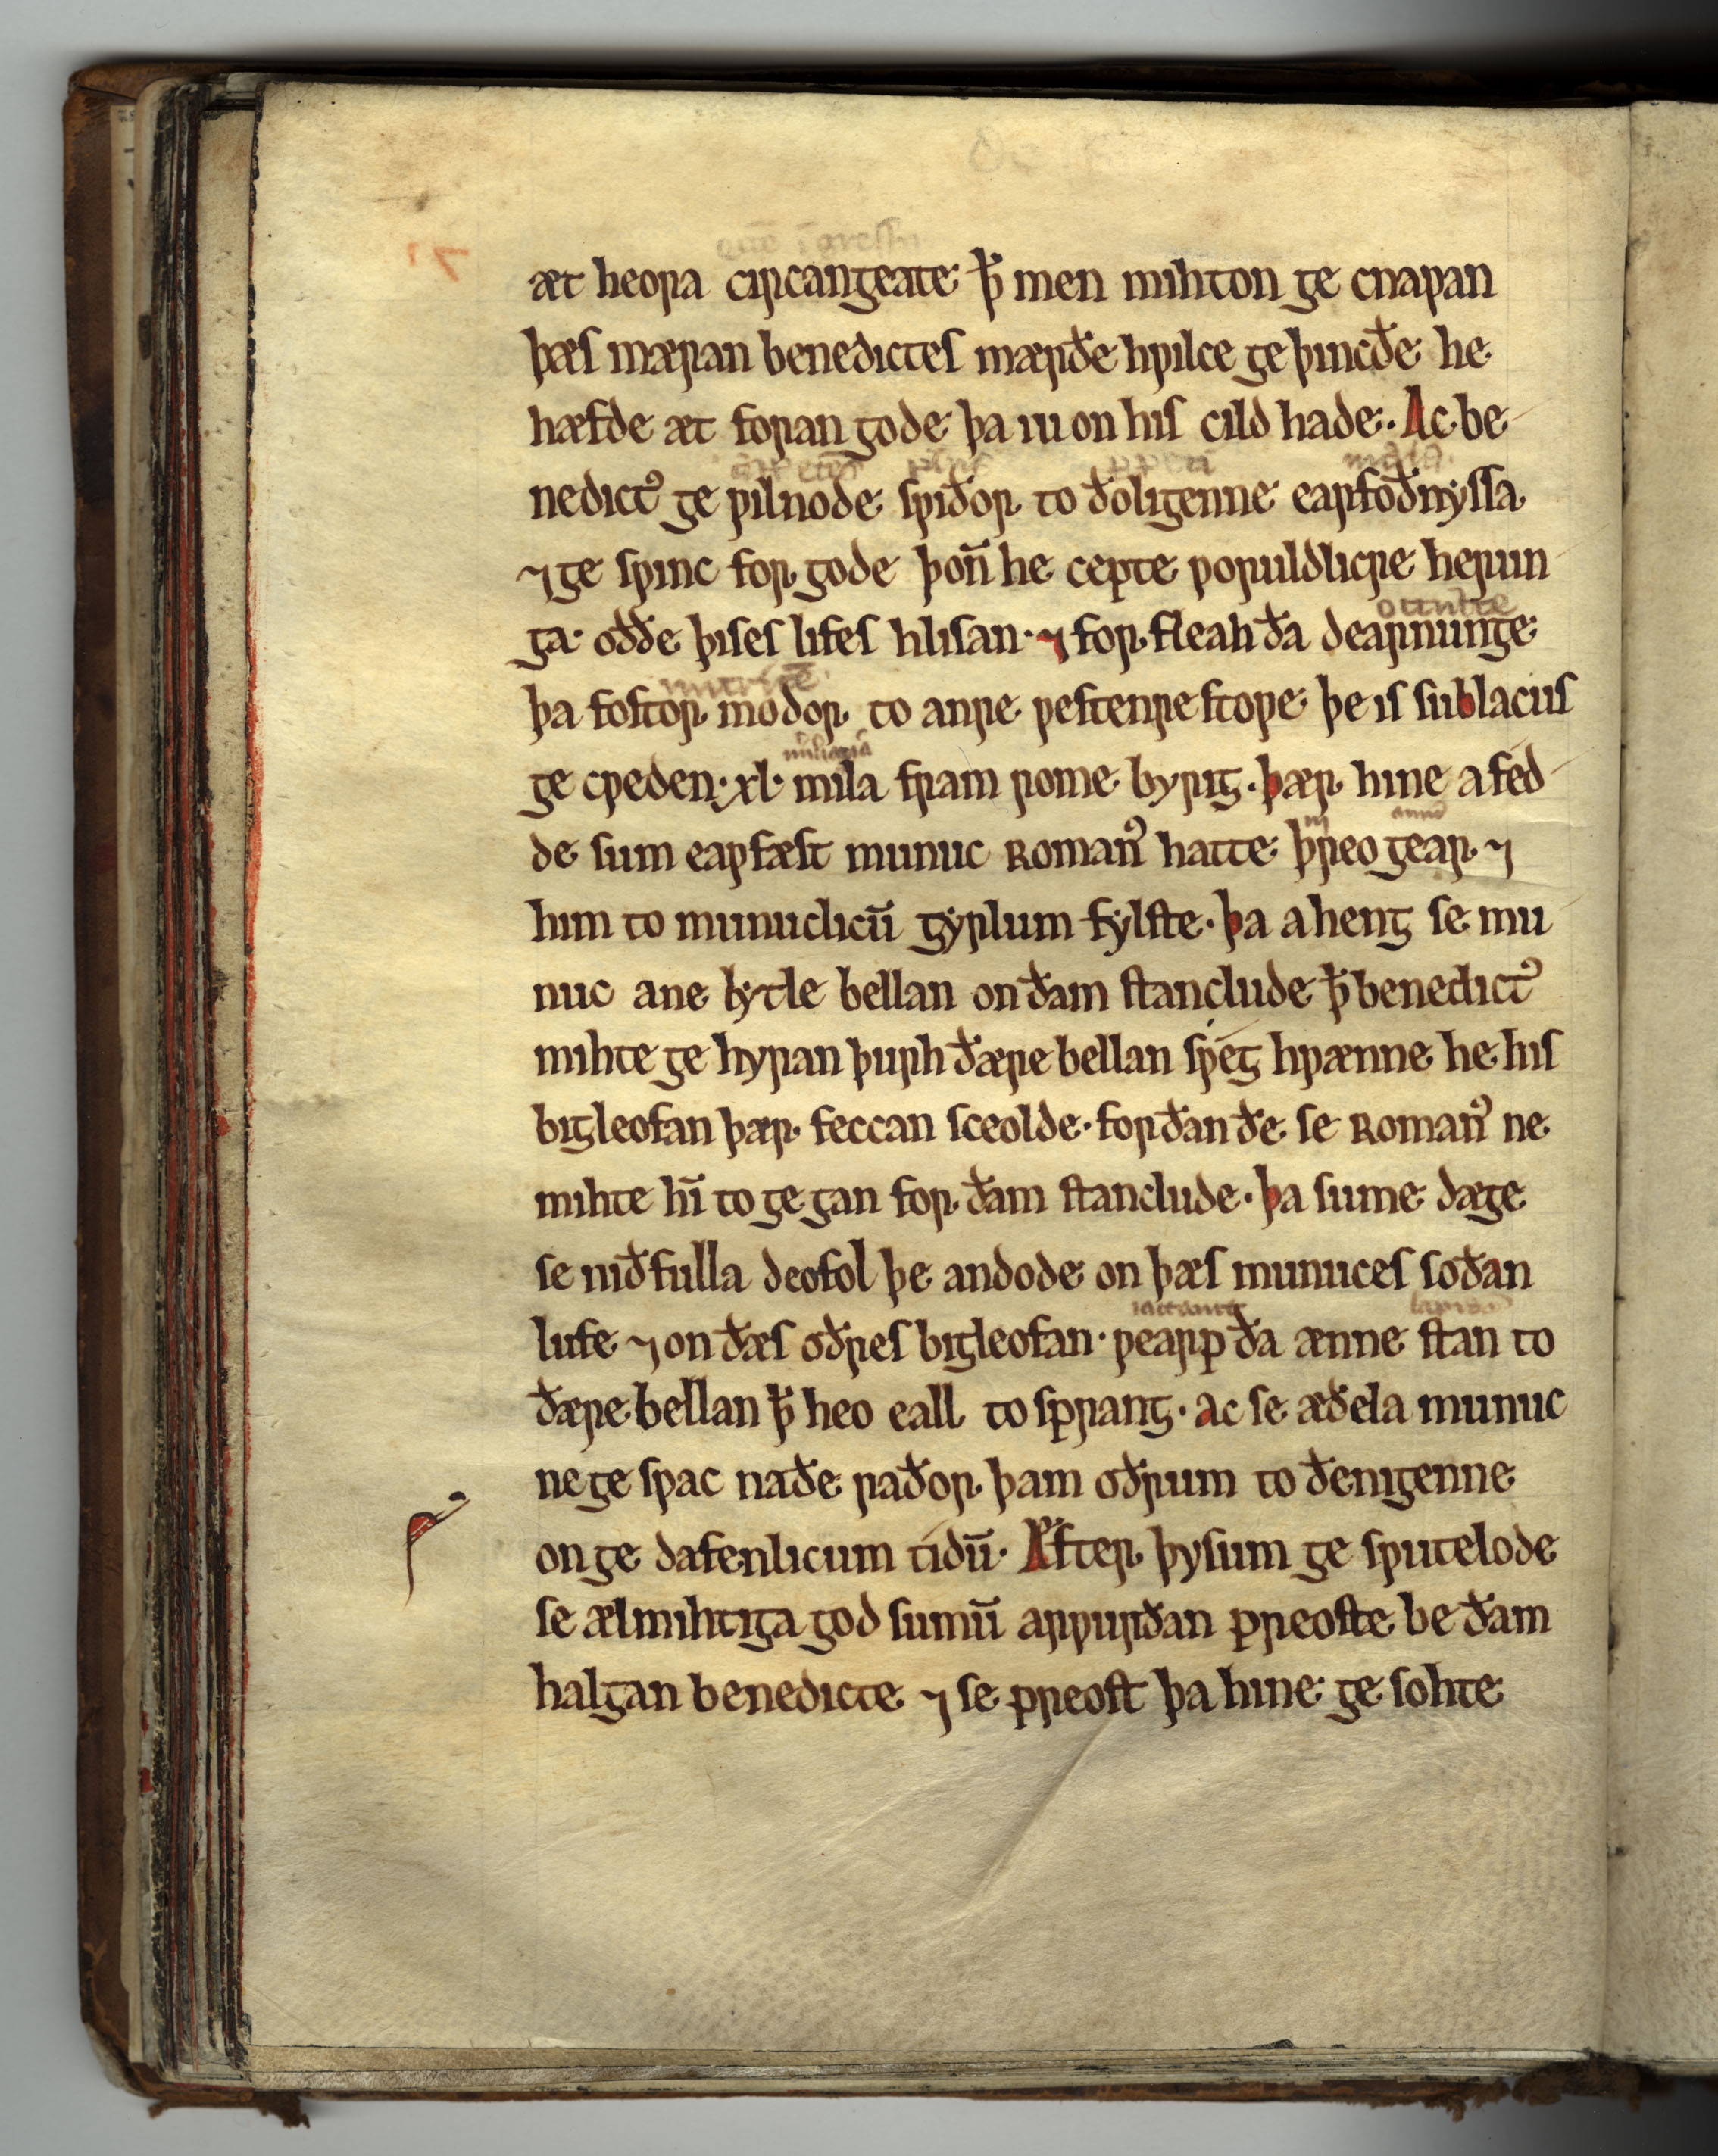 æt heora circangeate ꝥ men mihton ge cnaƿan
þæs mæran benedictes mærðe hƿilce ge þincðe he
hæfde æt foran gode þa iu on his cild hade. Ac be
nedictꝰ ge ƿilnode sƿiðor to ðoligenne earfoðnyssa
⁊ ge sƿinc for gode þoñ he cepte ƿoruldlicre herun
ottulte
ga oððe þises lifes hlisan · ⁊ for fleah ða dearnunge
nutricē
þa fostor modor to anre ƿestenre stoƿe þe is sublacus
miliaria
ge cƿeden · xl · mila fram rome byrig · þær hine afed
iii annis
de sum eaƿfæst munuc Romanꝰ hatte þreo gear ⁊
him to munuclicū gyrlum fylste · þa aheng se mu
nuc ane lytle bellan on ðam stanclude ꝥ benedictꝰ
mihte ge hyran þurh ðære bellan sƿeg hƿænne he his
bigleofan þær feccan sceolde · forðan ðe se Romanꝰ ne
mihte hī to ge gan for ðam stanclude · þa sume dæge
se niðfulla deofol þe andode on þæs munuces soðan
iactante
lufe ⁊ on ðæs oðres bigleofan · ƿearp ða ænne stan to
ðære bellan ꝥ heo eall to sprang · ac se æðela munuc
ne ge sƿac naðe raðor þam oðrum to ðenigenne
on ge dafenlicum tidū · Æfter þysum ge sƿutelode
se ælmihtiga god sumū arƿurðan preoste be ðam
halgan benedicte ⁊ se preost þa hine ge sohte